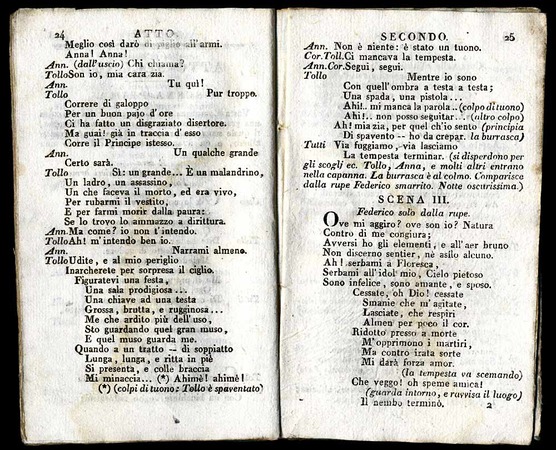 24 ATTO
Meglio così darò di piglio all'armi.
Anna! Anna!
Ann. (dall'uscio) Chi chiama?
Tollo Son io, mia cara zia.
Ann. Tu quì!
Tollo Pur troppo.
Correre di galoppo
Per un buon pajo d'ore
Ci ha fatto un disgraziato disertore.
Ma guai! già in traccia d'esso
Corre il Principe istesso.
Ann. Un qualche grande
Certo sarà.
Tollo Sì: un grande... È un malandrino,
Un ladro, un assassino,
Un che faceva il morto, ed era vivo,
Per rubarmi il vestito,
E per farmi morir dalla paura:
Se lo trovo lo ammazzo a dirittura.
Ann. Ma come? io non t'intendo.
Tollo Ah! m'intendo ben io.
Ann. Narrami almeno.
Tollo Udite, e al mio periglio
Inarcherete per sorpresa il ciglio.
Figuratevi una festa,
Una sala prodigiosa...
Una chiave ad una testa
Grossa, brutta, e rugginosa...
Me che ardito più dell'uso,
Sto guardando quel gran muso,
E quel muso guarda me.
Quando a un tratto -- di soppiatto
Lunga, lunga, e ritta in piè
Si presenta, e colle braccia
Mi minaccia... (*) Ahimè! ahimè!
(*) (colpi di tuono: Tollo è spaventato)
SECONDO. 25
Ann. Non è niente: è stato un tuono.
Cor. Toll. Ci mancava la tempesta.
Ann. Cor. Segui, segui.
Tollo Mentre io sono
Con quell'ombra a testa a testa;
Una spada, una pistola...
Ahi!.. mi manca la parola.. (colpo di tuono)
Ahi!.. non posso seguitar... (altro colpo)
Ah! mia zia, per quel ch'io sento (principia
Di spavento -- ho da crepar. la burrasca)
Tutti Via fuggiamo, via lasciamo
La tempesta terminar. (si disperdono per
gli scogli ec. Tollo, Anna, e molti altri entrano
nella capanna. La burrasca è al colmo. Comparisce
dalla rupe Federico smarrito. Notte oscurissima.)
SCENA III.
Federico solo dalla rupe.
Ove mi aggiro? ove son io? Natura
Contro di me congiura;
Avversi ho gli elementi, e all'aer bruno
Non discerno sentier, nè asilo alcuno.
Ah! serbami a Floresca,
Serbami all'idol mio, Cielo pietoso
Sono infelice, sono amante, e sposo.
Cessate, oh Dio! cessate
Smanie che m'agitate,
Lasciate, che respiri
Almen per poco il cor.
Ridotto presso a morte
M'opprimono i martiri,
Ma contro irata sorte
Mi darà forza amor.
(la tempesta va scemando)
Che veggo! oh speme amica!
(guarda intorno, e ravvisa il luogo)
Il nembo terminò. 2